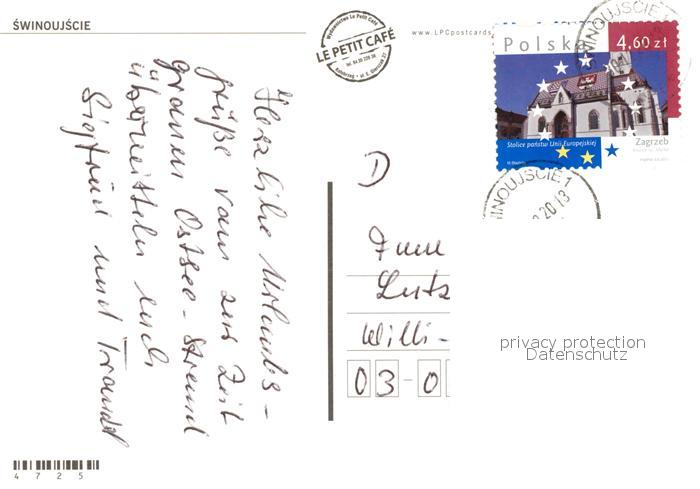 ŚWINOUJŚCIE
Wydawnictwo Le Petit Café
LE PETIT CAFÉ
www.LPCpostcards
Polska
4,60 zł
Stolice państw Unii Europejskiej
Zagrzeb
SWINOUJŚCIE 1
WINOUJSCIE 1
20 13
Herzliche Urlaubs-
grüße vom zur Zeit
grauen Ostsee-Strand
übermitteln euch
Sigfried und Traudel
D
Lutz
Willi-
03-0
privacy protection
Datenschutz
4725